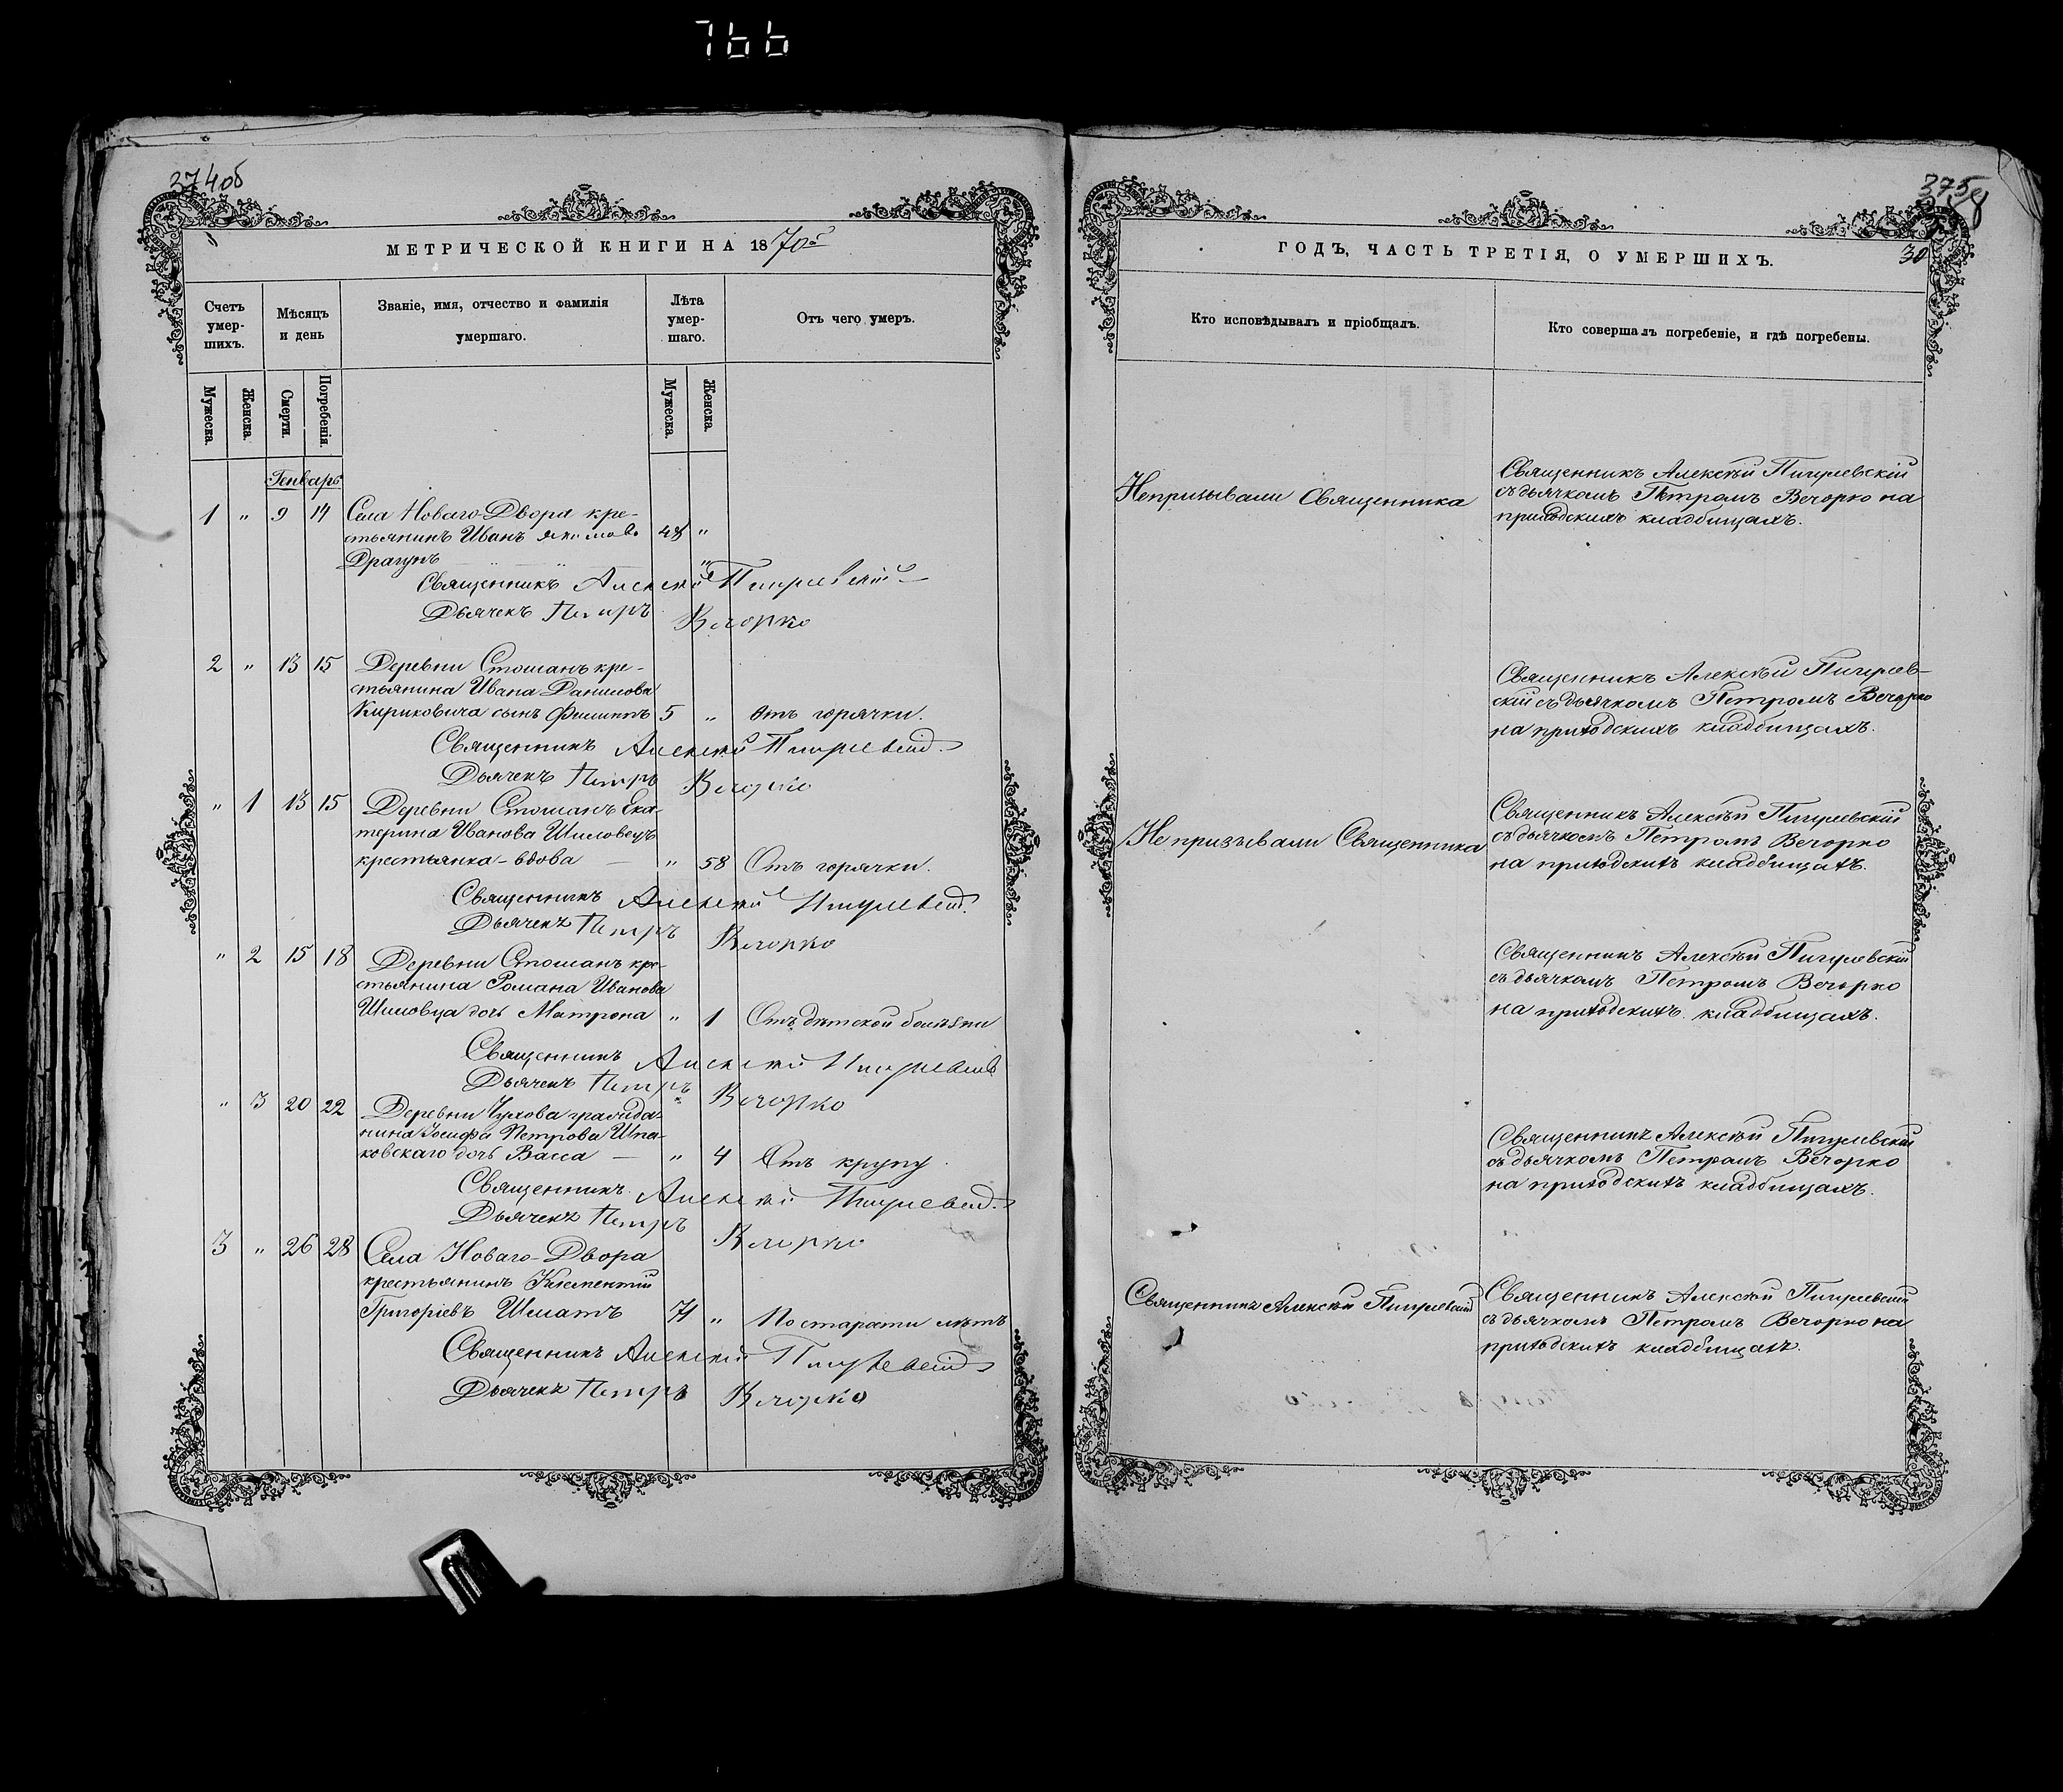 766
374об
МЕТРИЧЕСКОЙ КНИГИ НА 1870й
Счетъ умер-шихъ.
Мѣсяцъ и день
Званіе, имя, отчество и фамилія умершаго.
Лѣта умер-шаго.
Отъ чего умеръ.
Мужеска. Женска. Смерти. Погребенія. Мужеска. Женска.
Генварь
1 " 9 14 Села Новаго-Двора кре-
стьянинъ Иванъ Якимовъ 48 "
Драгунъ "
Священникъ Алексѣй Пигулевскій
Дьячекъ Петръ Вечорко
2 " 13 15 Деревни Стошанъ кре-
стьянина Ивана Данилова
Кириковича сынъ Филиппъ 5 " Отъ горячки.
Священникъ Алексѣй Пигулевскій
Дьячекъ Петръ Вечорко
" 1 13 15 Деревни Стошанъ Ека-
терина Иванова Шиловецъ
крестьянка-вдова — " 58 Отъ горячки.
Священникъ Алексѣй Пигулевскій
Дьячекъ Петръ Вечорко
" 2 15 18 Деревни Стошанъ кре-
стьянина Романа Иванова
Шиловца дочь Матрона " 1 Отъ дѣтской болѣзни
Священникъ Алексѣй Пигулевскій
Дьячекъ Петръ Вечорко
" 3 20 22 Деревни Чухова гражда-
нина Іосифа Петрова Шпа-
ковскаго дочь Васса — " 4 Отъ крупу
Священникъ Алексѣй Пигулевскій
Дьячекъ Петръ Вечорко
3 " 26 28 Села Новаго-Двора
крестьянинъ Климентій
Григоріевъ Шматъ 71 " По старости лѣтъ
Священникъ Алексѣй Пигулевскій
Дьячекъ Петръ Вечорко
375
30
ГОДЪ, ЧАСТЬ ТРЕТІЯ, О УМЕРШИХЪ.
Кто исповѣдывалъ и пріобщалъ.
Кто совершалъ погребеніе, и гдѣ погребены.
Непризывали Священника
Священникъ Алексѣй Пигулевскій
съ дьячкомъ Петромъ Вечорко на
приходскихъ кладбищахъ.
Священникъ Алексѣй Пигулев-
скій съ дьячкомъ Петромъ Вечорко
на приходскихъ кладбищахъ.
Не призывали Священника
Священникъ Алексѣй Пигулевскій
съ дьячкомъ Петромъ Вечорко
на приходскихъ кладбищахъ.
Священникъ Алексѣй Пигулевскій
съ дьячкомъ Петромъ Вечорко
на приходскихъ кладбищахъ.
Священникъ Алексѣй Пигулевскій
съ дьячкомъ Петромъ Вечорко
на приходскихъ кладбищахъ.
Священникъ Алексѣй Пигулевскій
Священникъ Алексѣй Пигулевскій
съ дьячкомъ Петромъ Вечорко на
приходскихъ кладбищахъ.